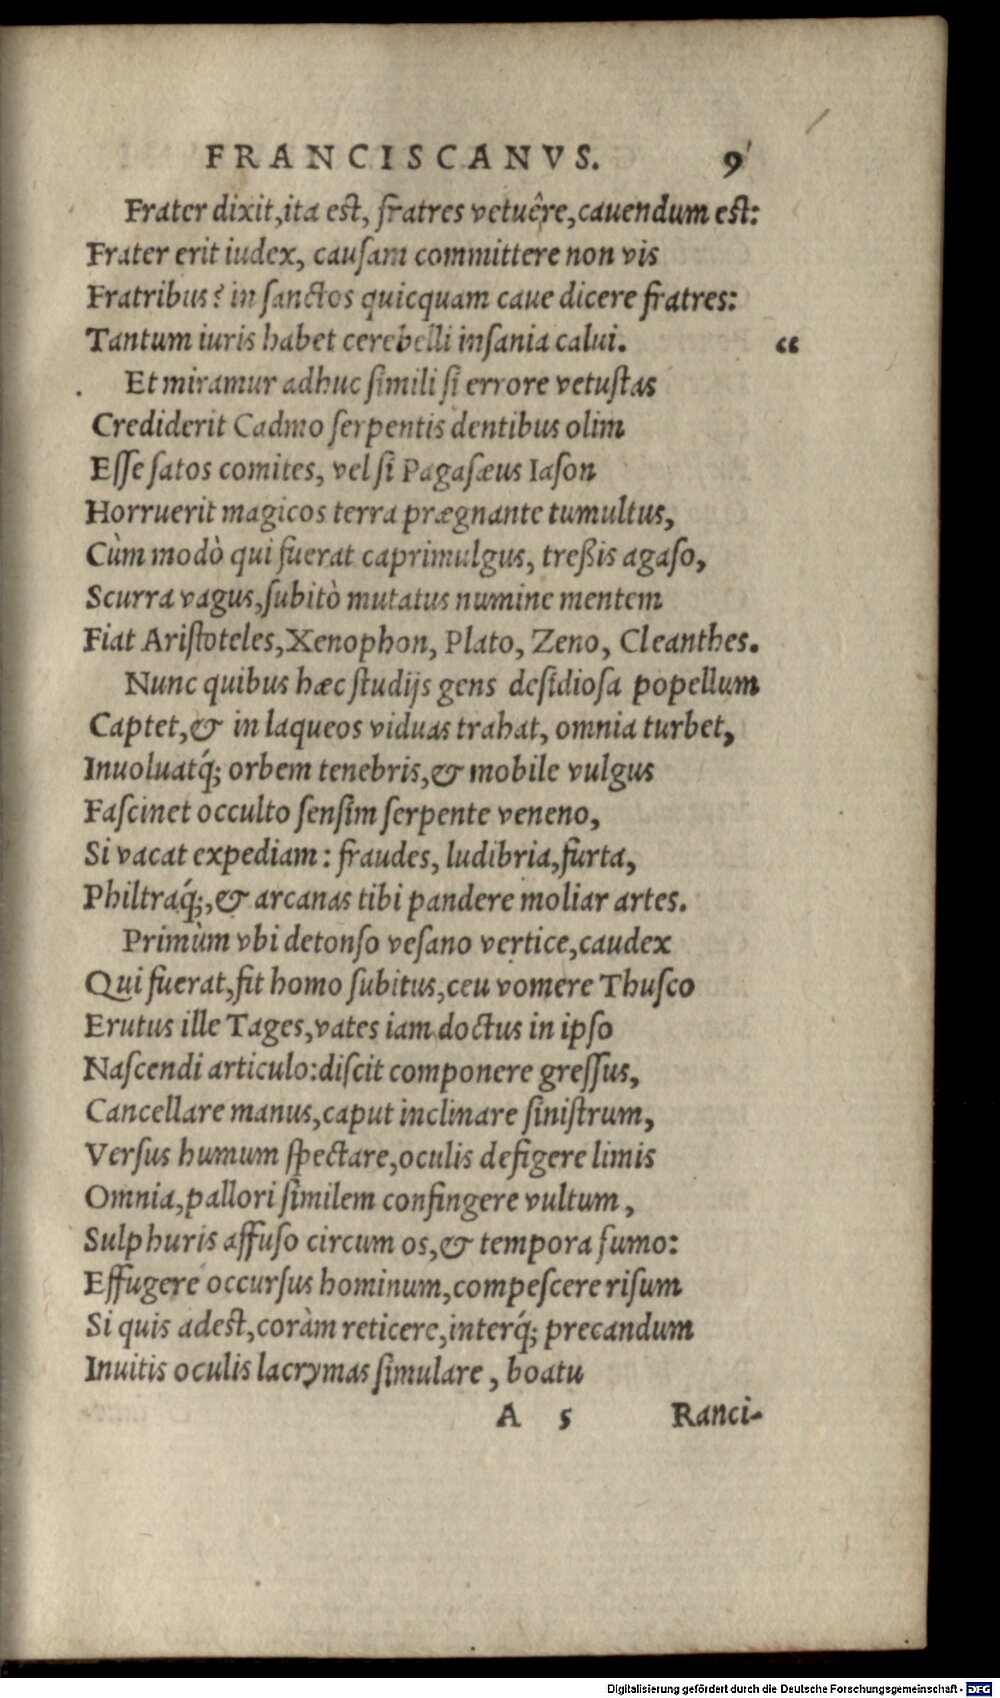 FRANCISCANVS. 9
Frater dixit, ita est, fratres vetuêre, cauendum est:
Frater erit iudex, causam committere non vis
Fratribus? in sanctos quicquam caue dicere fratres:
Tantum iuris habet cerebelli insania calui. “
Et miramur adhuc simili si errore vetustas
Crediderit Cadmo serpentis dentibus olim
Esse satos comites, vel si Pagasæus Iason
Horruerit magicos terra prægnante tumultus,
Cùm modò qui fuerat caprimulgus, treßis agaso,
Scurra vagus, subitò mutatus numine mentem
Fiat Aristoteles, Xenophon, Plato, Zeno, Cleanthes.
Nunc quibus hæc studijs gens desidiosa popellum
Captet, & in laqueos viduas trahat, omnia turbet,
Inuoluatq́; orbem tenebris, & mobile vulgus
Fascinet occulto sensim serpente veneno,
Si vacat expediam: fraudes, ludibria, furta,
Philtraq́;, & arcanas tibi pandere moliar artes.
Primùm vbi detonso vesano vertice, caudex
Qui fuerat, fit homo subitus, ceu vomere Thusco
Erutus ille Tages, vates iam doctus in ipso
Nascendi articulo: discit componere gressus,
Cancellare manus, caput inclinare sinistrum,
Versus humum spectare, oculis defigere limis
Omnia, pallori similem confingere vultum,
Sulphuris affuso circum os, & tempora fumo:
Effugere occursus hominum, compescere risum
Si quis adest, coràm reticere, interq́; precandum
Inuitis oculis lacrymas simulare, boatu
A 5 Ranci-
Digitalisierung gefördert durch die Deutsche Forschungsgemeinschaft - DFG